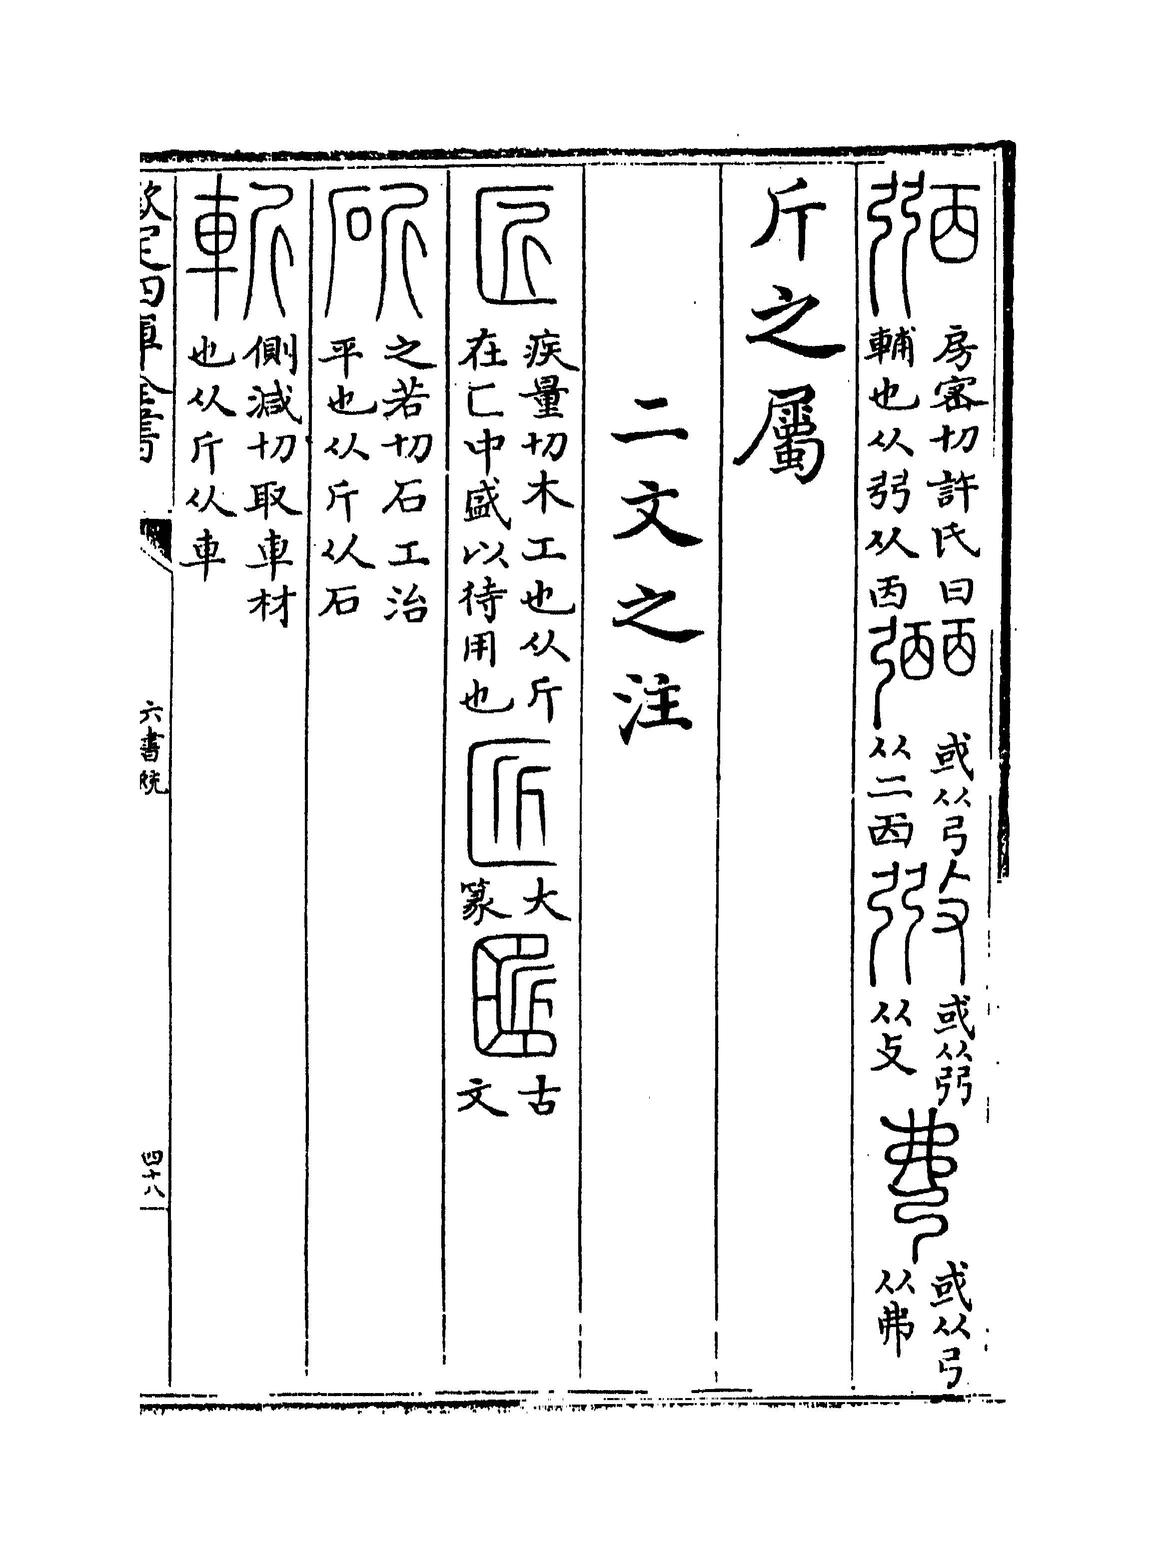 弼房宻切許氏曰輔也从弜从㐁 或从弓从二㐁 或从弜从攴 或从弓从弗
斤之屬
二文之注
匠疾量切木工也从斤在匚中盛以待用也 大篆 古文
斫之若切石工治平也从斤从石
斬側減切取車材也从斤从車
欽定四庫全書 六書統 四十八